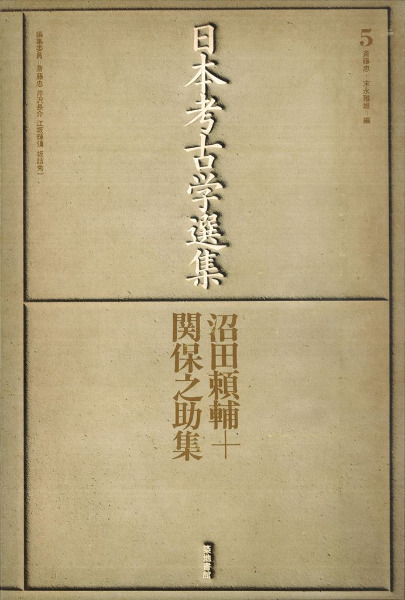 5
斎藤忠・末永雅雄=編
日本考古学選集
編集委員・斎藤忠 芹沢長介 江坂輝彌 坂詰秀一
沼田頼輔+
関保之助集
築地書館